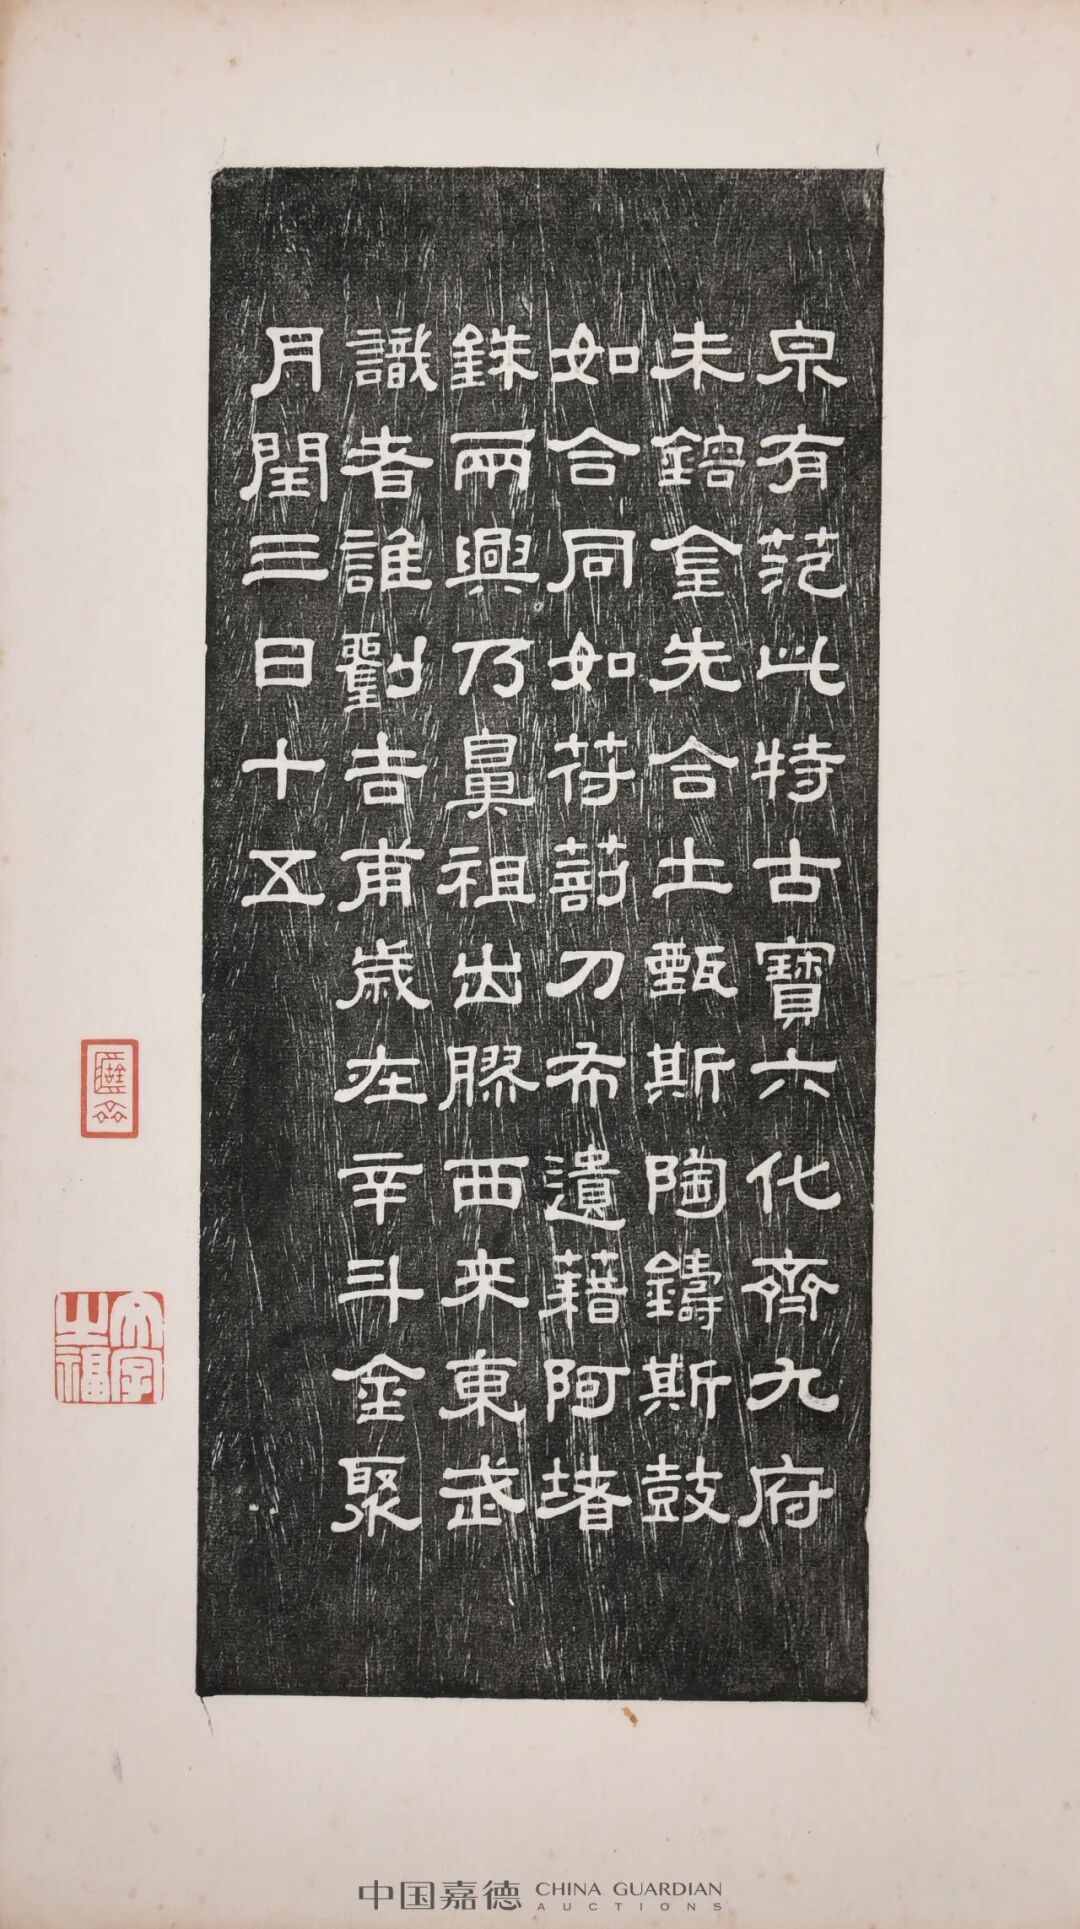 泉有范此特古寶六化齊九府
未鎔金先合土甄斯陶鑄斯鼓
如合同如苻莭刀布遺藉阿堵
銖兩興乃鼻祖出膠西来東武
識者誰劉吉甫歲在辛斗金聚
月閏三日十五
文字之福
中国嘉德 CHINA GUARDIAN
AUCTIONS